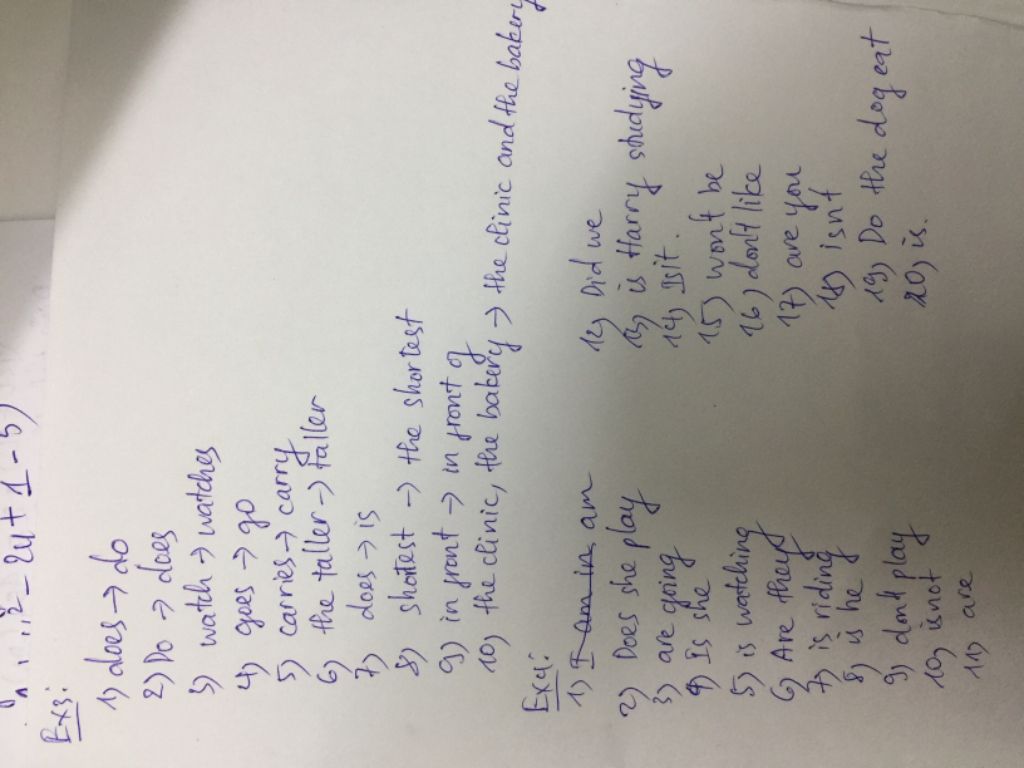 2u + 1 - 5)
Ex3:
1) does → do
2) Do → does
3) watch → watches
4) goes → go
5) carries → carry
6) the taller → taller
7) does → is
8) shortest → the shortest
9) in front → in front of
10) the clinic, the bakery → the clinic and the bakery
Ex4:
1) I am in am
2) Does she play
3) are going
4) Is she
5) is watching
6) Are they
7) is riding
8) is he
9) don't play
10) is not
11) are
12) Did we
13) is Harry studying
14) Is it.
15) won't be
16) don't like
17) are you
18) isnt
19) Do the dog eat
20) is.